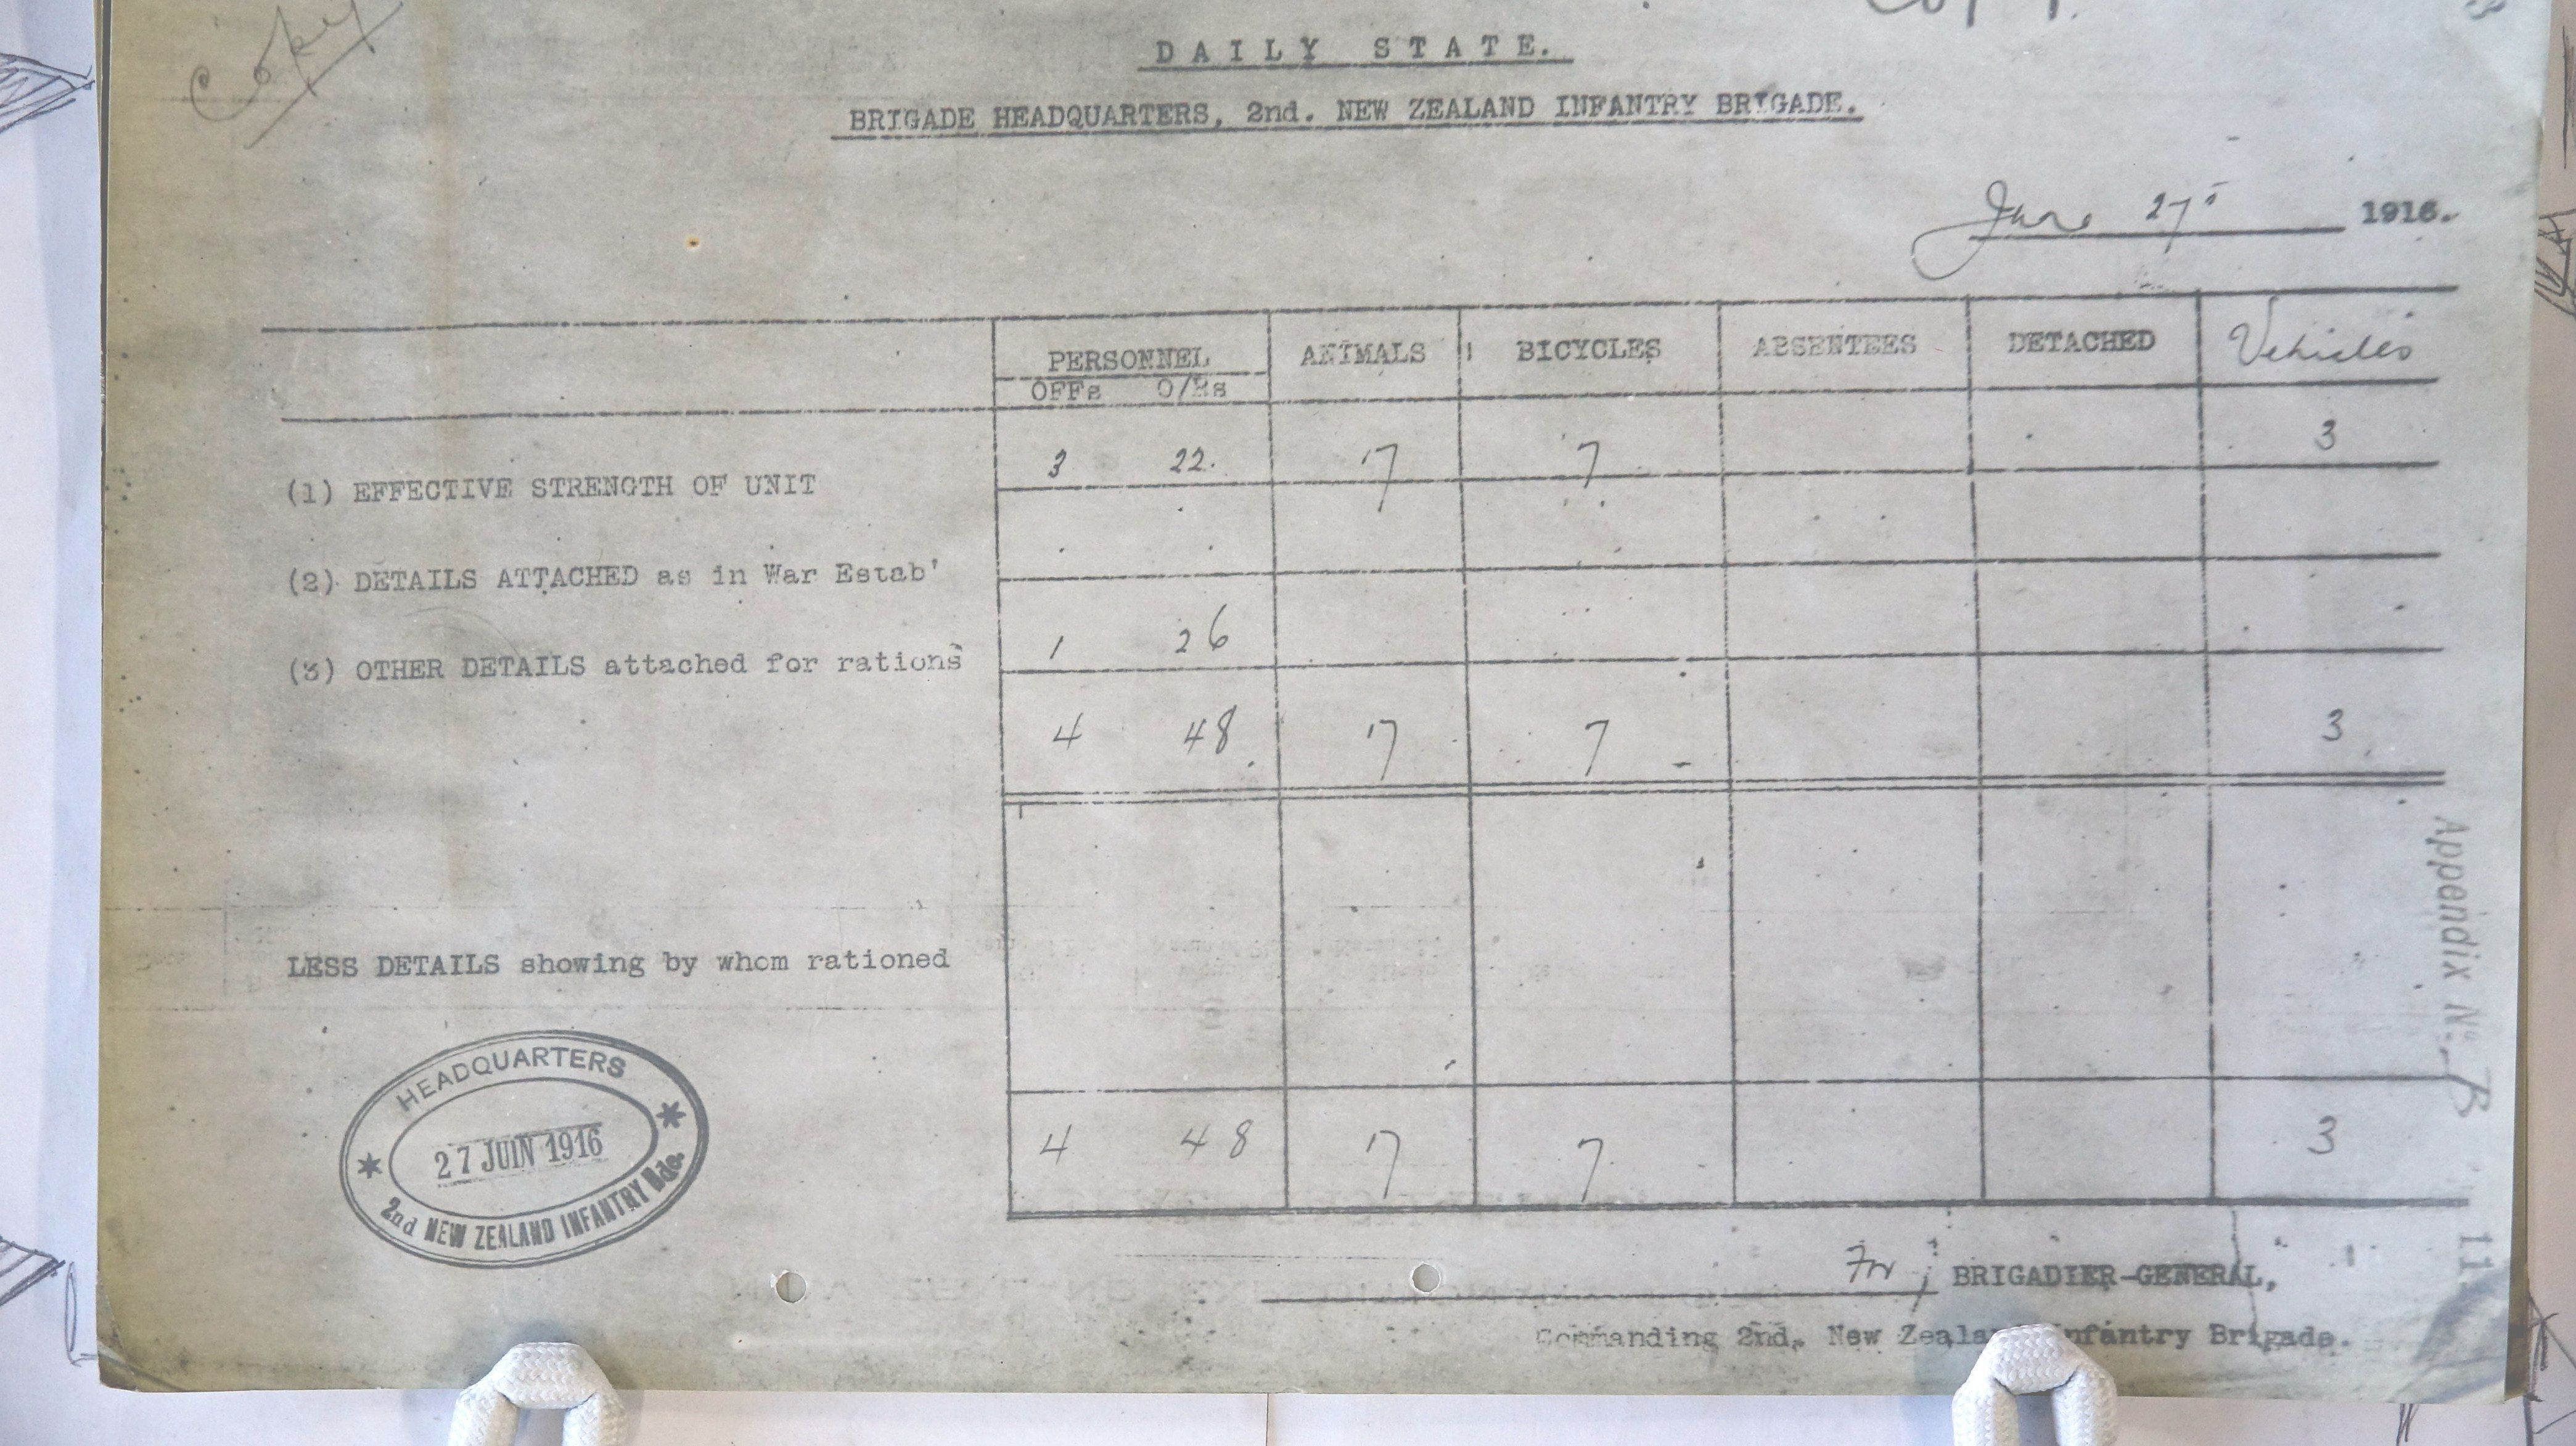 Copy
Copy.
DAILY STATE.
BRIGADE HEADQUARTERS, 2nd. NEW ZEALAND INFANTRY BRIGADE.
June 27 1916.
PERSONNEL ANIMALS BICYCLES ABSENTEES DETACHED Vehicles
OFFs O/Rs
(1) EFFECTIVE STRENGTH OF UNIT 3 22. 17 7 3
(2) DETAILS ATTACHED as in War Estab'
(3) OTHER DETAILS attached for rations 1 26
4 48 17 7 3
LESS DETAILS showing by whom rationed
4 48 17 7 3
HEADQUARTERS
27 JUIN 1916
2nd NEW ZEALAND INFANTRY Bde.
For BRIGADIER-GENERAL,
Commanding 2nd. New Zealand Infantry Brigade.
Appendix No. B
11